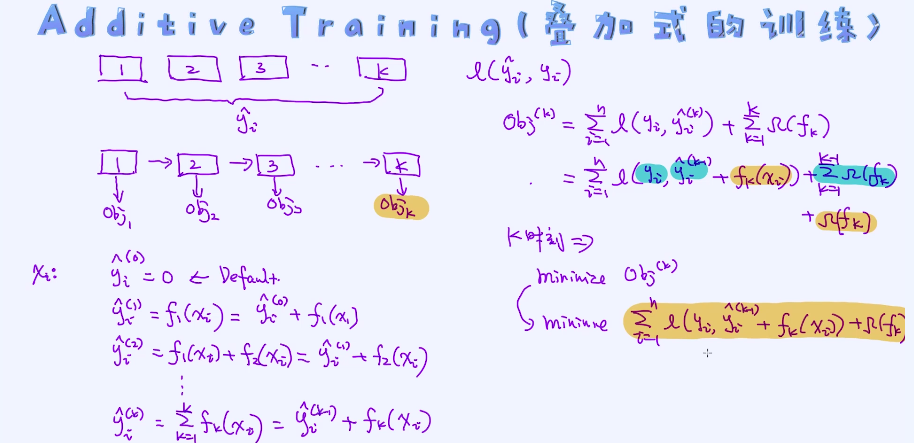 Additive Training(叠加式的训练)
1 2 3 ... k
ŷᵢ
1 → 2 → 3 ... → k
Obj₁ Obj₂ Obj₃ Objₖ
xᵢ:
ŷᵢ⁽⁰⁾ = 0 ← Default.
ŷᵢ⁽¹⁾ = f₁(xᵢ) = ŷᵢ⁽⁰⁾ + f₁(xᵢ)
ŷᵢ⁽²⁾ = f₁(xᵢ) + f₂(xᵢ) = ŷᵢ⁽¹⁾ + f₂(xᵢ)
⋮
ŷᵢ⁽ᵏ⁾ = ∑ₖ₌₁ᵏ fₖ(xᵢ) = ŷᵢ⁽ᵏ⁻¹⁾ + fₖ(xᵢ)
l(ŷᵢ, yᵢ)
Obj⁽ᵏ⁾ = ∑ᵢ₌₁ⁿ l(yᵢ, ŷᵢ⁽ᵏ⁾) + ∑ₖ₌₁ᵏ Ω(fₖ)
= ∑ᵢ₌₁ⁿ l(yᵢ, ŷᵢ⁽ᵏ⁻¹⁾ + fₖ(xᵢ)) + ∑ₖ₌₁ᵏ⁻¹ Ω(fₖ)
+ Ω(fₖ)
K时刻 ⇒
minimize Obj⁽ᵏ⁾
minimize ∑ᵢ₌₁ⁿ l(yᵢ, ŷᵢ⁽ᵏ⁻¹⁾ + fₖ(xᵢ)) + Ω(fₖ